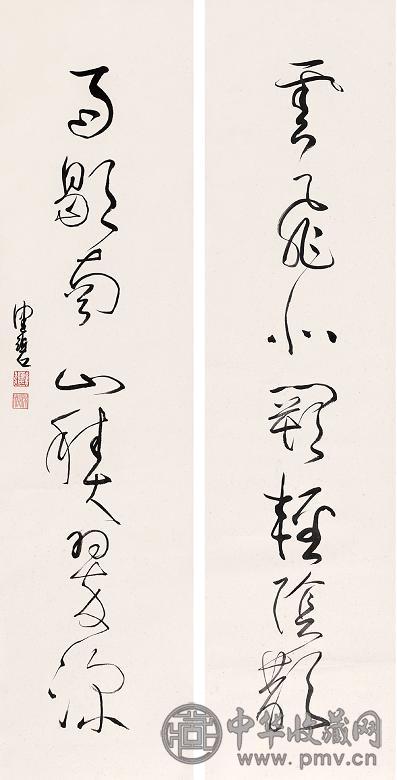 雲飛北闕輕陰散
雨歇南山積翠深
健碧
中华收藏网
www.pmv.cn